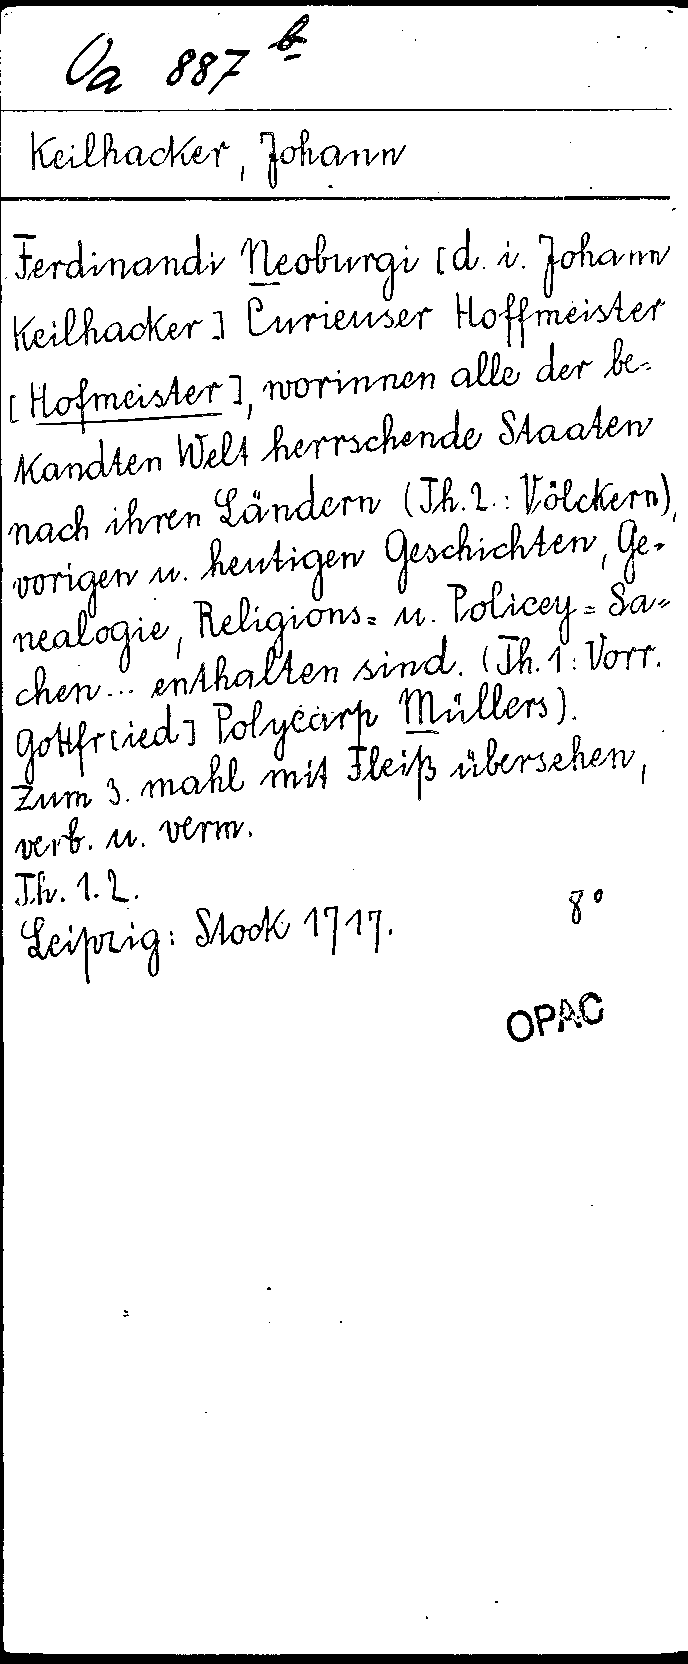 Oa 887 b
Keilhacker, Johann
Ferdinandi Neoburgi [d. i. Johann
Keilhacker] Curieuser Hoffmeister
[Hofmeister], worinnen alle der be-
kandten Welt herrschende Staaten
nach ihren Ländern (Th. 2.: Völckern),
vorigen u. heutigen Geschichten, Ge-
nealogie, Religions= u. Policey=Sa-
chen... enthalten sind. (Th. 1: Vorr.
Gottfr[ied] Polycarp Müllers).
Zum 3. mahl mit Fleiß übersehen,
verb. u. verm.
Th. 1. 2.
Leipzig: Stock 1717. 8°
OPAC